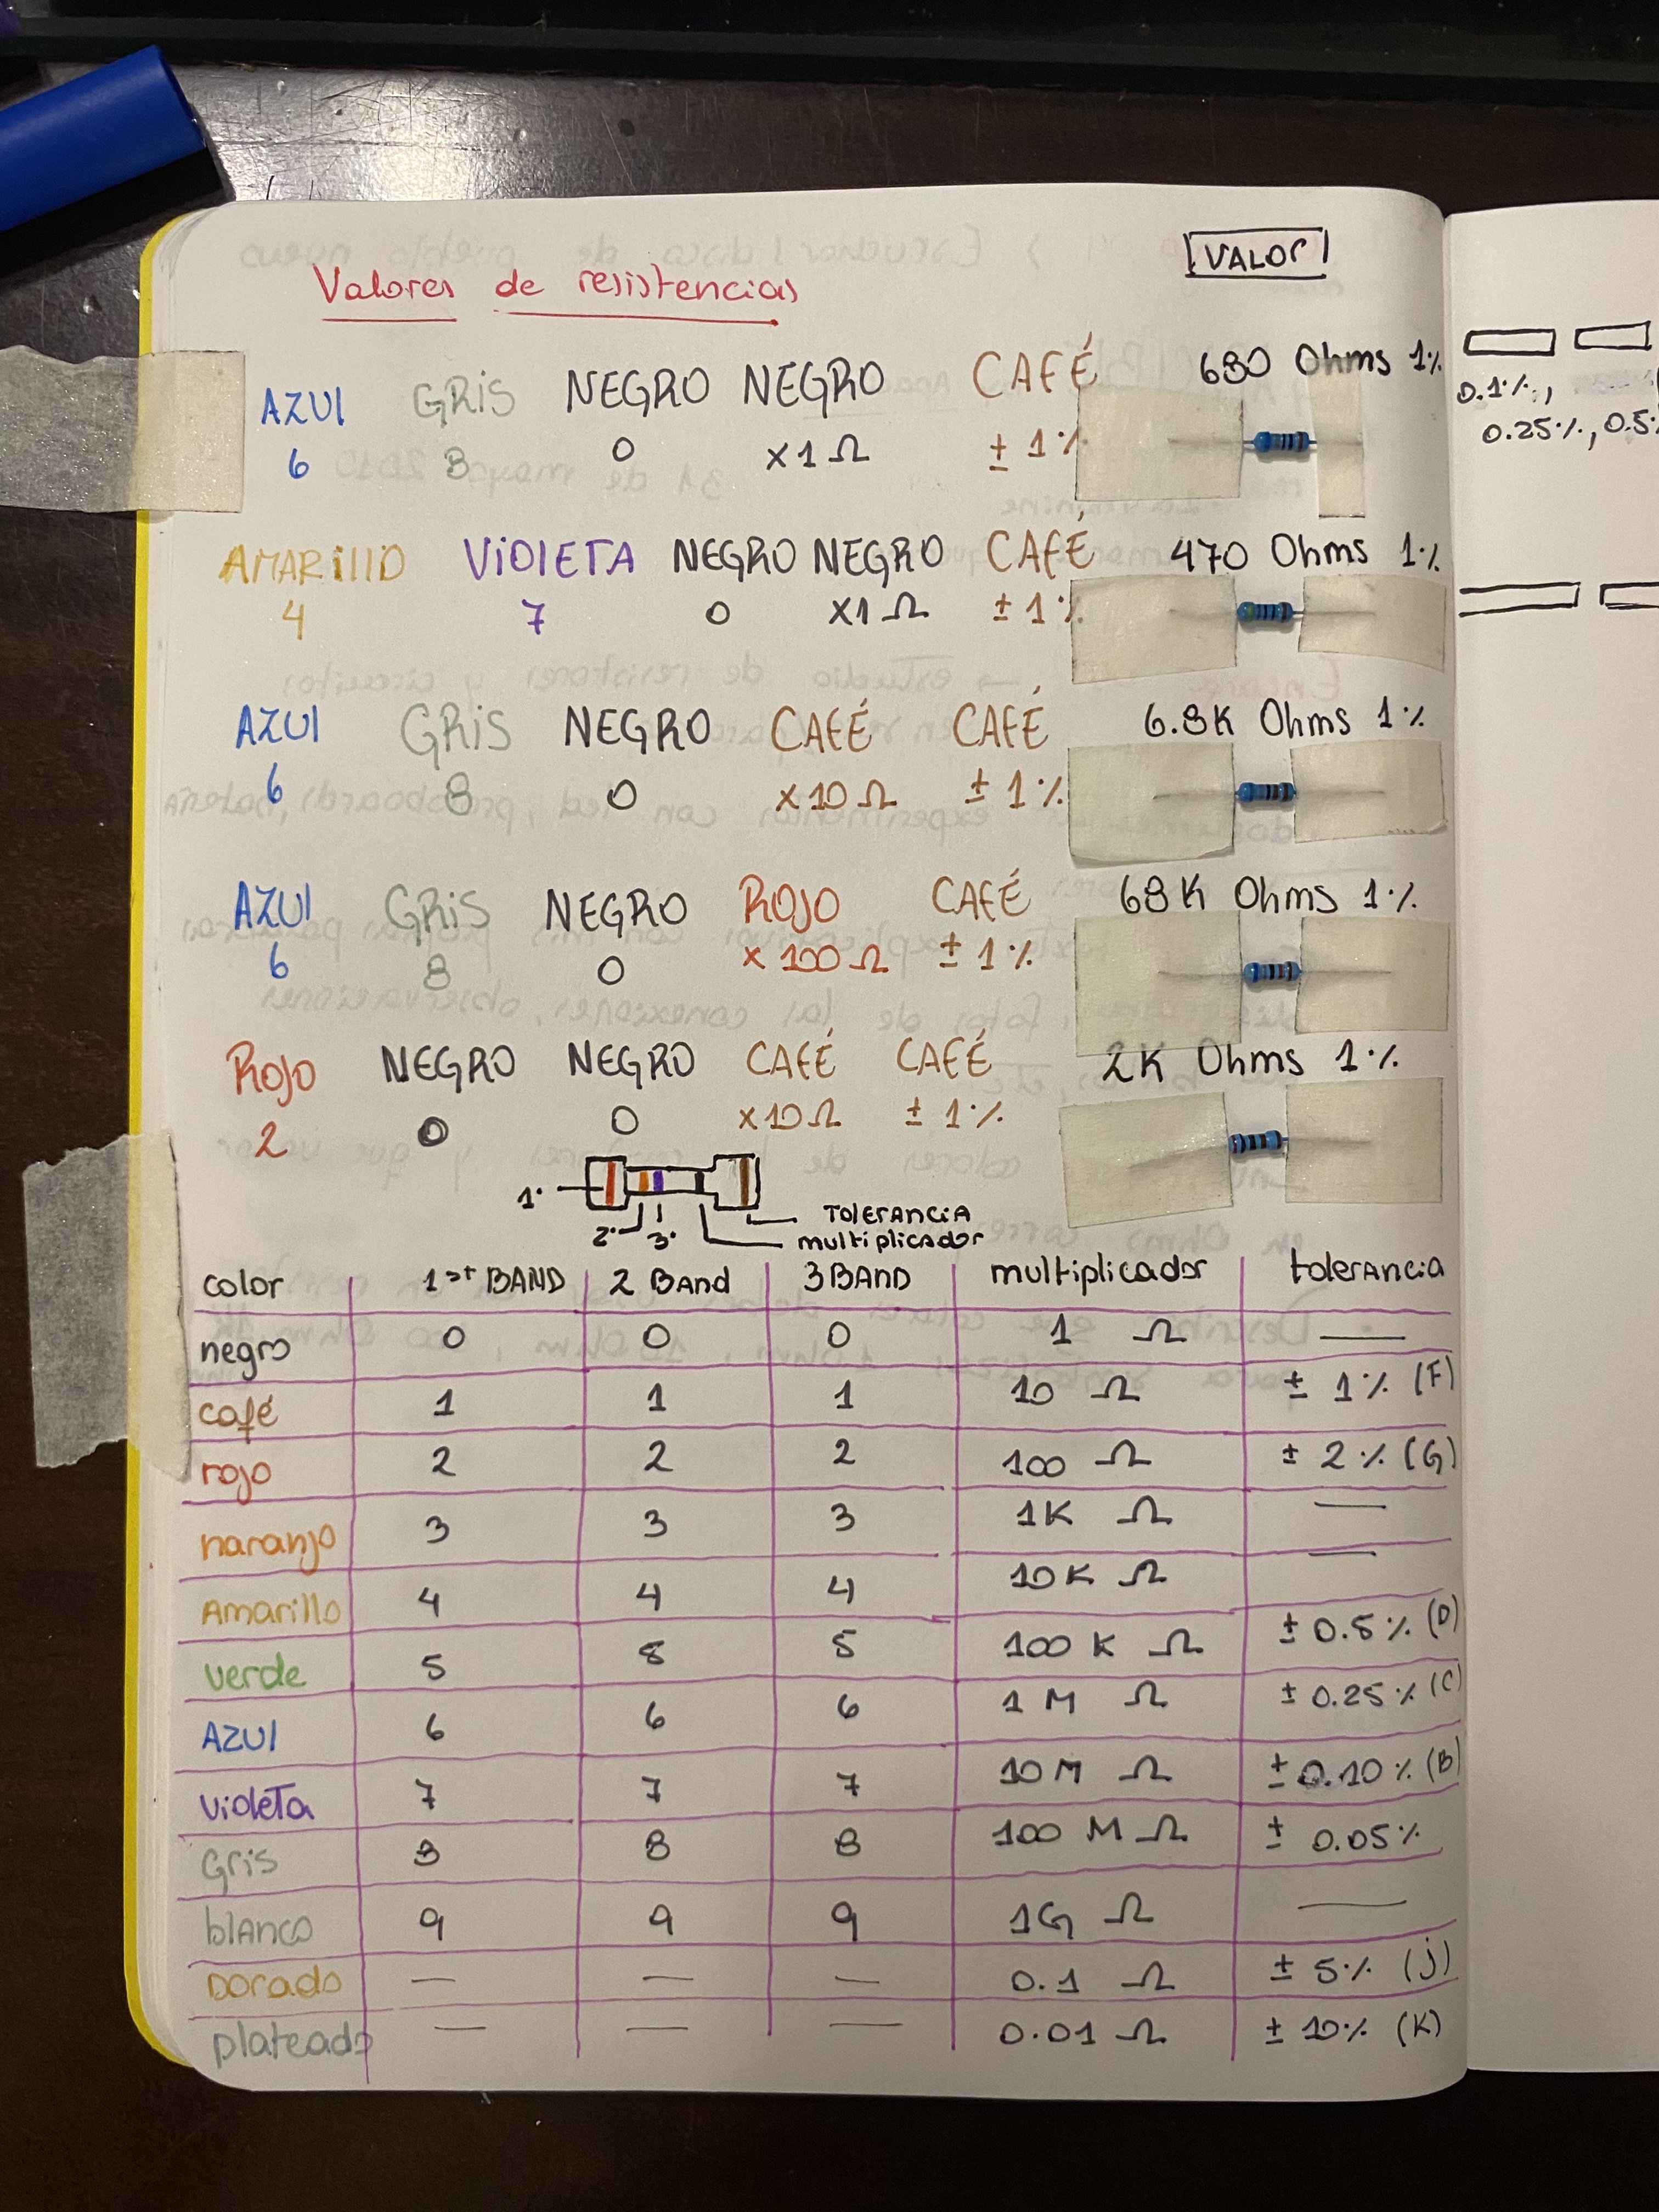 VALOR
Valores de resistencias
AZUl GRiS NEGRO NEGRO CAFÉ 680 Ohms 1%
6 8 0 x1 Ω ± 1%
AMARIllO ViOlETA NEGRO NEGRO CAFÉ 470 Ohms 1%
4 7 0 x1 Ω ± 1%
AZUl GRiS NEGRO CAFÉ CAFÉ 6.8K Ohms 1%
6 8 0 x10 Ω ± 1%
AZUl GRiS NEGRO ROJO CAFÉ 68K Ohms 1%
6 8 0 x 100 Ω ± 1%
ROJO NEGRO NEGRO CAFÉ CAFÉ 2K Ohms 1%
2 0 0 x10 Ω ± 1%
1°
2° 3° TOlERANCiA
multiplicador
color 1st BAND 2 Band 3 BAND multiplicador tolerancia
negro 0 0 0 1 Ω —
café 1 1 1 10 Ω ± 1% (F)
rojo 2 2 2 100 Ω ± 2% (G)
naranjo 3 3 3 1K Ω —
Amarillo 4 4 4 10K Ω —
verde 5 8 5 100 K Ω ± 0.5% (D)
AZUl 6 6 6 1 M Ω ± 0.25% (C)
violeta 7 7 7 10M Ω ± 0.10% (B)
Gris 8 8 8 100 M Ω ± 0.05%
blanco 9 9 9 1G Ω —
Dorado — — — 0.1 Ω ± 5% (J)
plateado — — — 0.01 Ω ± 10% (K)
0.1%,
0.25%, 0.5%